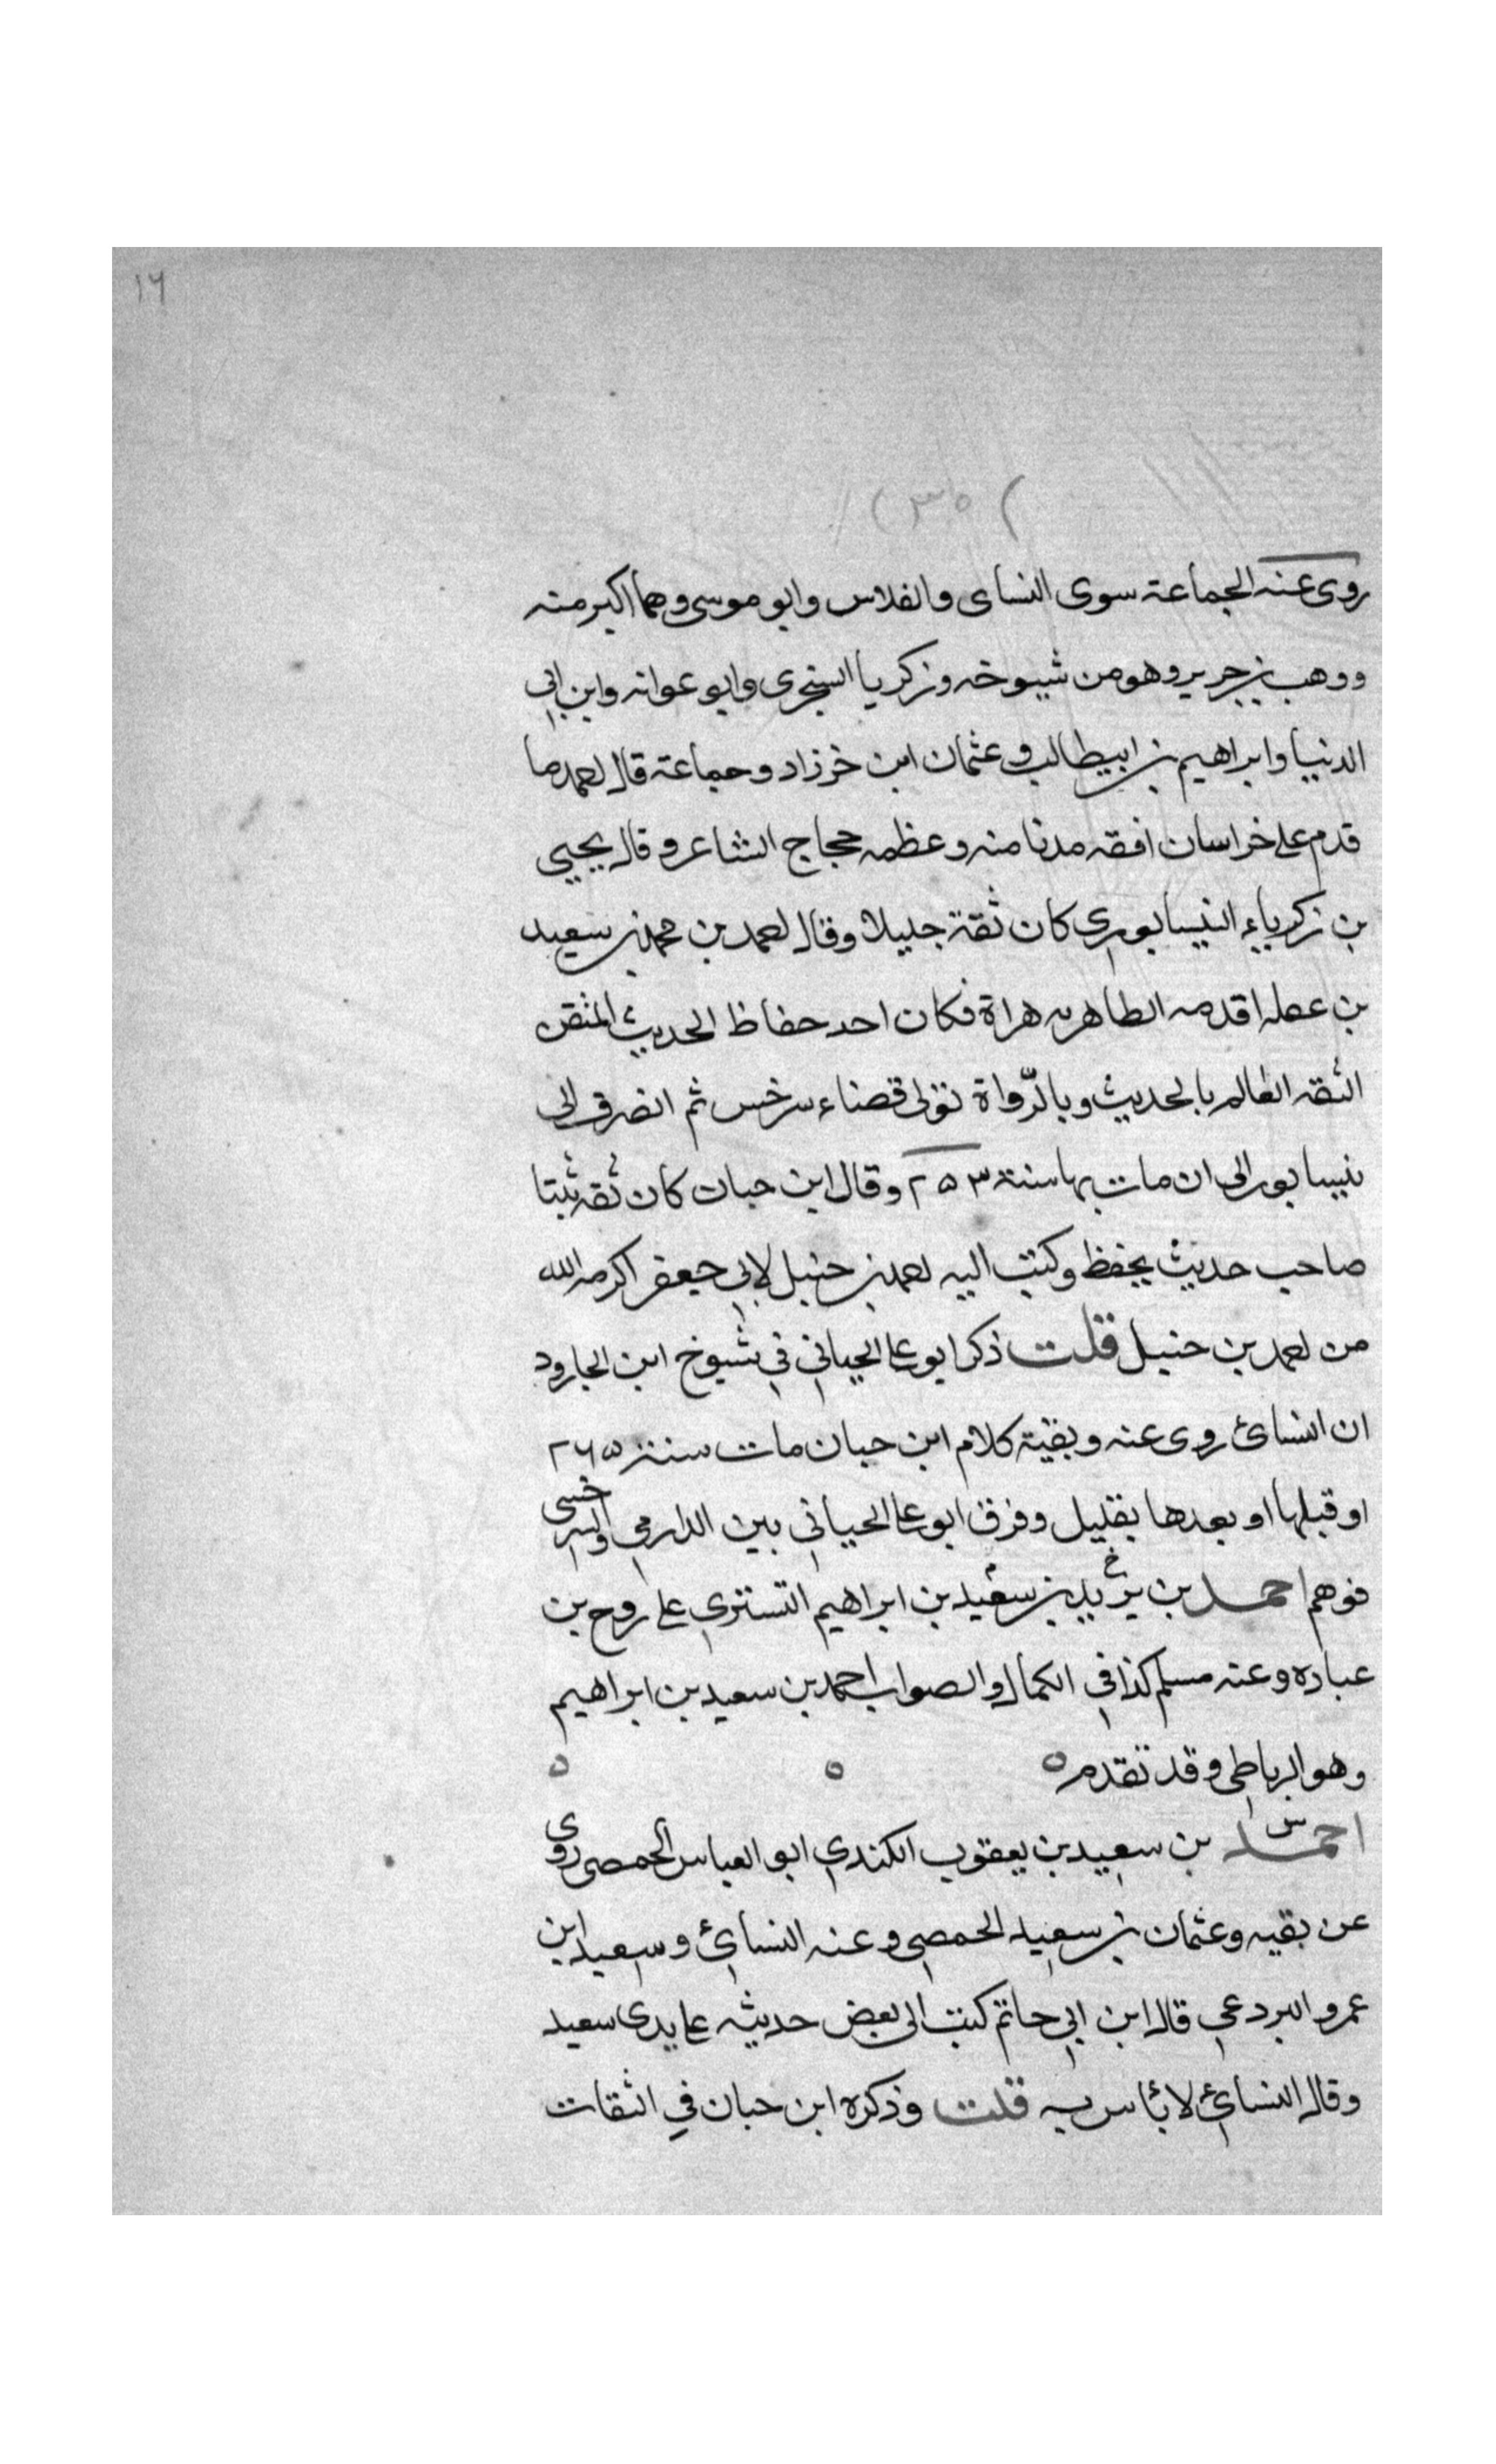 ١٦
(٣٥)
روى عنه الجماعة سوى النساى والفلاس وابو موسى وهما اكبر منه
ووهب بن جرير وهو من شيوخه وزكريا السنجرى وابو عوانه وابن ابي
الدنيا وابراهيم بن ابيطالب وعثمان ابن خرزاد وجماعة قال احمد ما
قدم على خراسان افقه مدنا منه وعظمه حجاج الشاعر وقال يحيى
بن زكرياء النيسابوري كان ثقة جليلا وقال احمد بن محمد بن سعيد
بن اقدمه الطاهريه هراة فكان احد حفاظ الحديث المتقن
الثقه العالم بالحديث وبالرّواة تولى قضاء سرخس ثم انصرف الى
نيسابور الى ان مات بها سنة ٢٥٣ وقال ابن حبان كان ثقه ثبتا
صاحب حديث يحفظ وكتب اليه احمد بن حنبل لابي جعفر اكرمه الله
من احمد بن حنبل قلت ذكر ابو علي الجياني في شيوخ ابن الجارود
ان النسائ روى عنه وبقية كلام ابن حبان مات سنة ٢٦٥
او قبلها او بعدها بقليل وفرق ابو علي الجياني بين الدارمي والسرخسى
فوهم احمد بن سعيد بن ابراهيم التسترى على روح بن
عباده وعنه مسلم كذا في الكمال والصواب احمد بن سعيد بن ابراهيم
وهو الرباطى وقد تقدم ٥ ٥ ٥
احمد س بن سعيد بن يعقوب الكندي ابو العباس الحمصى روى
عن بقيه وعثمان بن سعيد الحمصى وعنه النسائ وسعيد ابن
عمرو البردعي قال ابن ابي حاتم كتب الى بعض حديثه على يدى سعيد
وقال النسائ لا بأس به قلت وذكره ابن حبان في الثقات